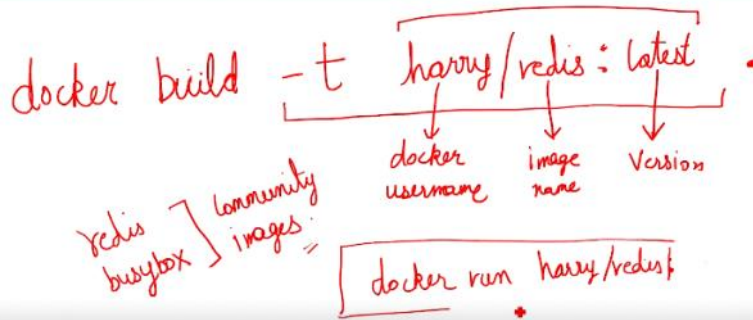 docker build -t harry/redis : latest .
docker username
image name
Version
redis
busybox
Community images.
docker run harry/redis